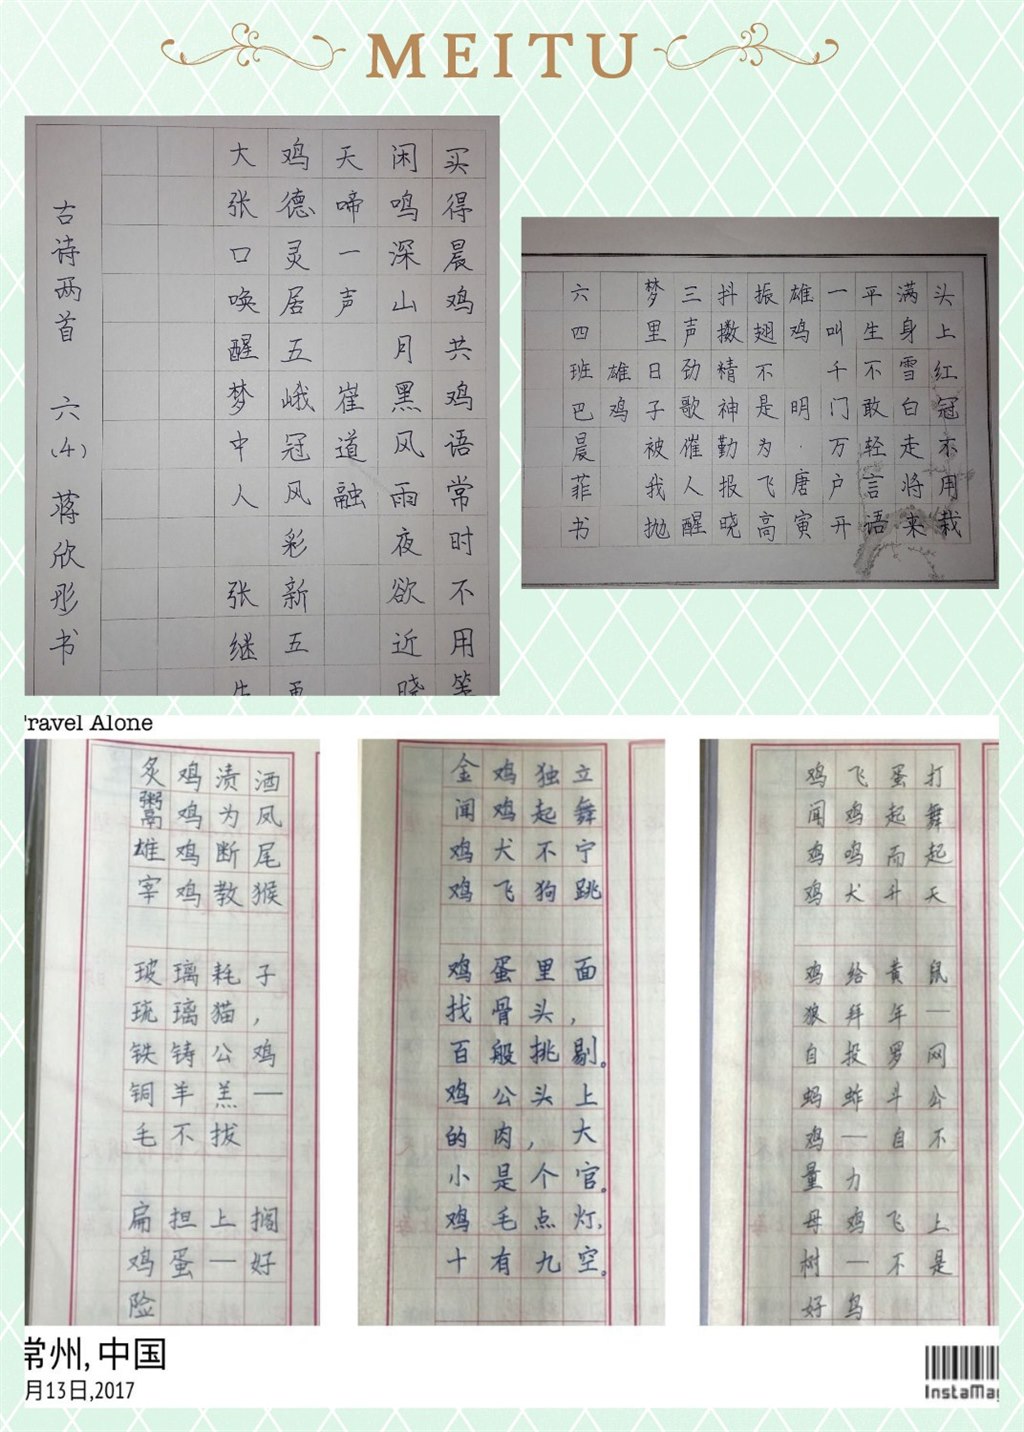 MEITU
买得晨鸡共鸡语常时不用
闲鸣深山月黑风雨夜欲近晓
天啼一声 崔道融
鸡德灵居五峨冠风彩新五更
大张口唤醒梦中人 张继
古诗两首 六(4) 蒋欣彤书
头上红冠不用栽
满身雪白走将来
平生不敢轻言语
一叫千门万户开
雄鸡 明·唐寅
振翅不是为飞高
抖擞精神勤报晓
三声劲歌催人醒
梦里日子被我抛
雄鸡
六四班巴晨菲书
Travel Alone
炙鸡渍酒
鬻鸡为凤
雄鸡断尾
宰鸡教猴
玻璃耗子
琉璃猫，
铁铸公鸡
铜羊羔—
毛不拔
扁担上搁
鸡蛋—好
险
金鸡独立
闻鸡起舞
鸡犬不宁
鸡飞狗跳
鸡蛋里面
找骨头，
百般挑剔。
鸡公头上
的肉，大
小是个官。
鸡毛点灯，
十有九空。
鸡飞蛋打
闻鸡起舞
鸡鸣而起
鸡犬升天
鸡给黄鼠
狼拜年—
自投罗网
蚂蚱斗公
鸡—自不
量力
母鸡飞上
树—不是
好鸟
常州,中国
月13日,2017
InstaMag